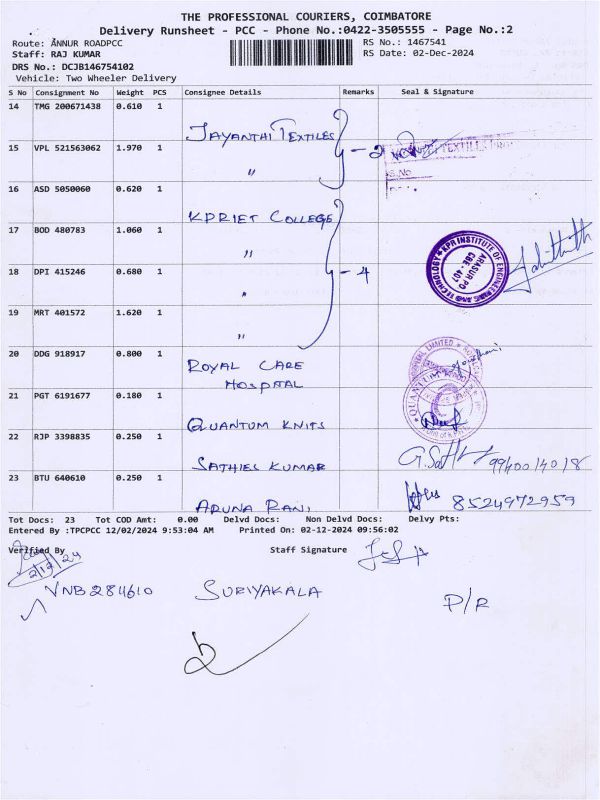 THE PROFESSIONAL COURIERS, COIMBATORE
Delivery Runsheet - PCC - Phone No.:0422-3505555 - Page No.:2
Route: ANNUR ROADPCC RS No.: 1467541
Staff: RAJ KUMAR RS Date: 02-Dec-2024
DRS No.: DCJB146754102
Vehicle: Two Wheeler Delivery
S No Consignment No Weight PCS Consignee Details Remarks Seal & Signature
14 TMG 200671438 0.610 1 JAYANTHI TEXTILES
15 VPL 521563062 1.970 1 " - 2
16 ASD 5050060 0.620 1 KPRIET COLLEGE
17 BOD 480783 1.060 1 "
18 DPI 415246 0.680 1 " - 4
KPR INSTITUTE OF ENGINEERING AND TECHNOLOGY
ARASUR PO
CBE-407
19 MRT 401572 1.620 1 "
20 DDG 918917 0.800 1 ROYAL CARE
HOSPITAL
21 PGT 6191677 0.180 1 QUANTUM KNITS
22 RJP 3398835 0.250 1 SATHIES KUMAR 9940014018
23 BTU 640610 0.250 1 ARUNA RANI 8524972959
Tot Docs: 23 Tot COD Amt: 0.00 Delvd Docs: Non Delvd Docs: Delvy Pts:
Entered By :TPCPCC 12/02/2024 9:53:04 AM Printed On: 02-12-2024 09:56:02
Verified By Staff Signature
2/12/24
VNB 284610 SURIYAKALA P/R